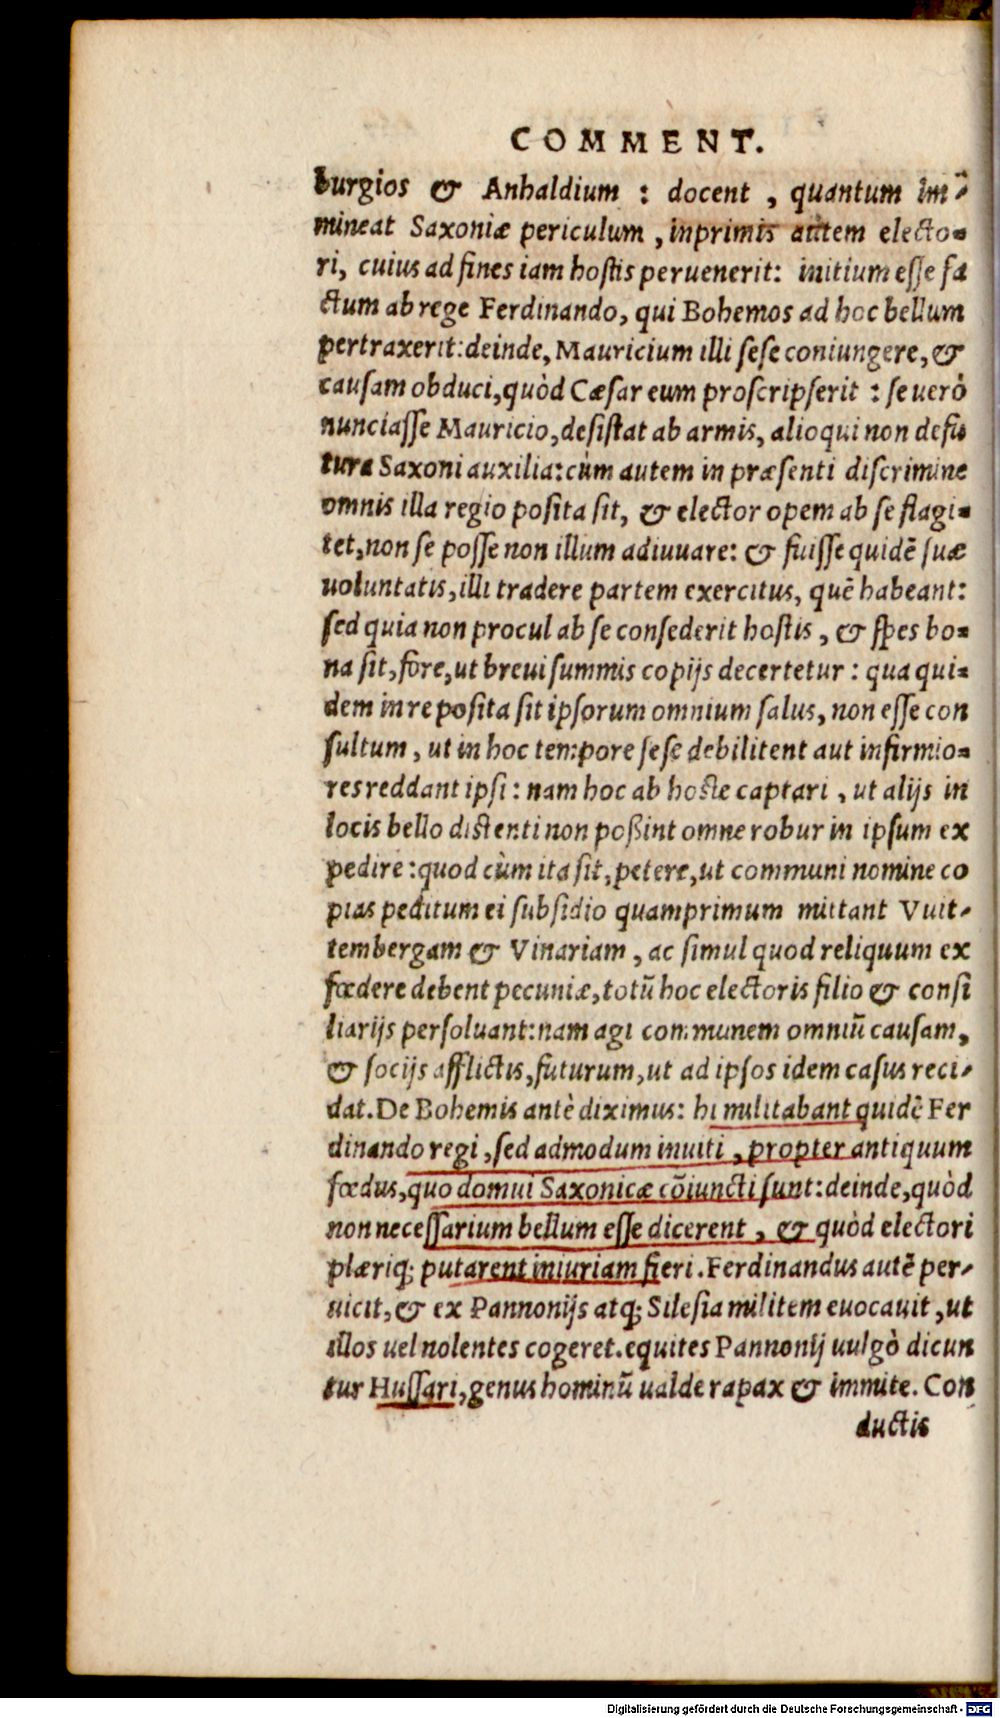 COMMENT.
burgios & Anhaldium : docent , quantum im-
mineat Saxoniæ periculum , inprimis autem electo-
ri, cuius ad fines iam hostis peruenerit: initium esse fa
ctum ab rege Ferdinando, qui Bohemos ad hoc bellum
pertraxerit: deinde, Mauricium illi sese coniungere, &
causam obduci, quòd Cæsar eum proscripserit : se uerò
nunciasse Mauricio, desistat ab armis, alioqui non defu
tura Saxoni auxilia: cùm autem in præsenti discrimine
omnis illa regio posita sit, & elector opem ab se flagi-
tet, non se posse non illum adiuuare: & fuisse quidẽ suæ
uoluntatis, illi tradere partem exercitus, quẽ habeant:
sed quia non procul ab se consederit hostis , & spes bo-
na sit, fore, ut breui summis copijs decertetur : qua qui-
dem in re posita sit ipsorum omnium salus, non esse con
sultum , ut in hoc tempore sese debilitent aut infirmio-
res reddant ipsi : nam hoc ab hoste captari , ut alijs in
locis bello distenti non poßint omne robur in ipsum ex
pedire: quod cùm ita sit, petere, ut communi nomine co
pias peditum ei subsidio quamprimum mittant Vuit-
tembergam & Vinariam , ac simul quod reliquum ex
fœdere debent pecuniæ, totũ hoc electoris filio & consi
liarijs persoluant: nam agi communem omniũ causam,
& socijs afflictis, futurum, ut ad ipsos idem casus reci-
dat. De Bohemis antè diximus: hi militabant quidẽ Fer
dinando regi , sed admodum inuiti , propter antiquum
fœdus, quo domui Saxonicæ cõiuncti sunt: deinde, quòd
non necessarium bellum esse dicerent , & quòd electori
plæriq; putarent iniuriam fieri. Ferdinandus autẽ per-
uicit, & ex Pannonijs atq; Silesia militem euocauit , ut
illos uel nolentes cogeret. equites Pannonij uulgò dicun
tur Hussari, genus hominũ ualde rapax & immite. Con
ductis
Digitalisierung gefördert durch die Deutsche Forschungsgemeinschaft - DFG